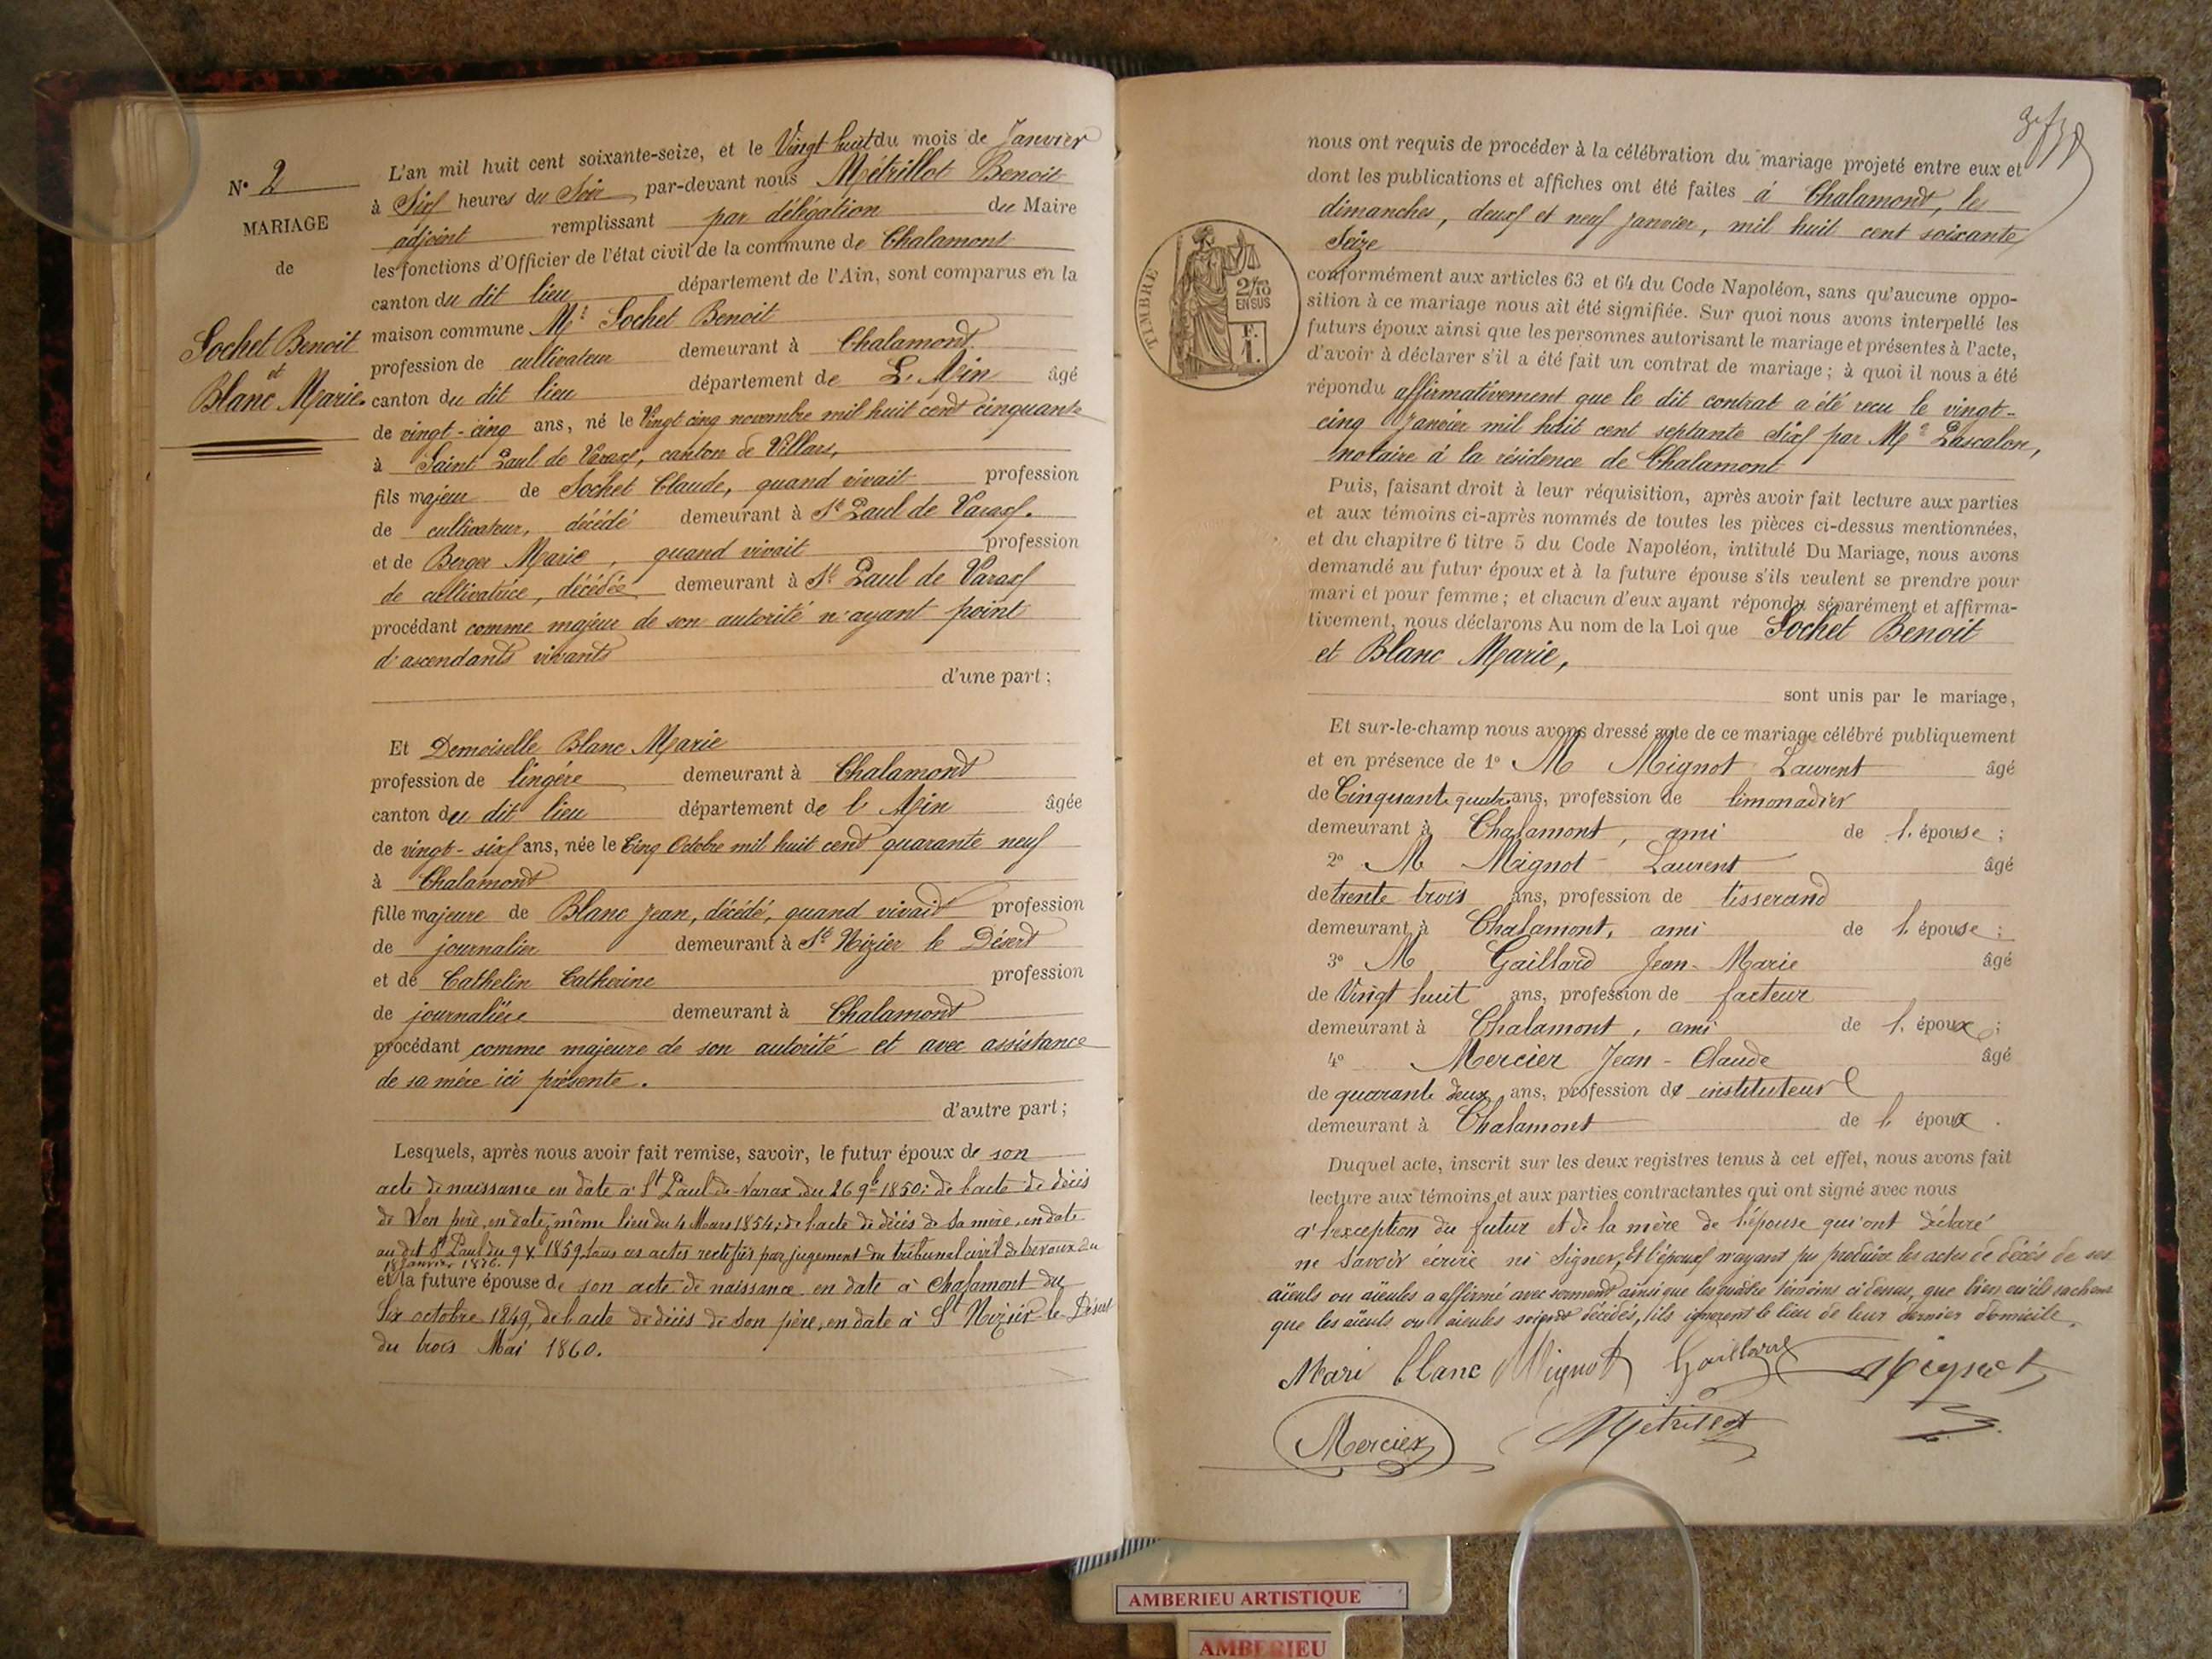 N° 2
MARIAGE
de
Sochet Benoit
et
Blanc Marie.
L'an mil huit cent soixante-seize, et le Vingt huit du mois de Janvier
à Six heures du Soir par-devant nous Métrillot Benoit
adjoint remplissant par délégation du Maire
les fonctions d'Officier de l'état civil de la commune de Chalamont
canton du dit lieu département de l'Ain, sont comparus en la
maison commune Mr Sochet Benoit
profession de cultivateur demeurant à Chalamont
canton du dit lieu département de L'Ain âgé
de vingt-cinq ans, né le Vingt cinq novembre mil huit cent cinquante
à Saint Paul de Varax, canton de Villars,
fils majeur de Sochet Claude, quand vivait profession
de cultivateur, décédé demeurant à St Paul de Varax.
et de Berger Marie, quand vivait profession
de cultivatrice, décédée demeurant à St Paul de Varax
procédant comme majeur de son autorité n'ayant point
d'ascendants vivants
d'une part ;
Et Demoiselle Blanc Marie
profession de lingère demeurant à Chalamont
canton du dit lieu département de l'Ain âgée
de vingt-six ans, née le Cinq Octobre mil huit cent quarante neuf
à Chalamont
fille majeure de Blanc Jean, décédé, quand vivait profession
de journalier demeurant à St Nizier le Désert
et de Cathelin Catherine profession
de journalière demeurant à Chalamont
procédant comme majeure de son autorité et avec assistance
de sa mère ici présente.
d'autre part ;
Lesquels, après nous avoir fait remise, savoir, le futur époux de son
acte de naissance en date à St Paul de Varax du 26 9bre 1850; de l'acte de décès
de son père, en date, même lieu du 4 Mars 1854; de l'acte de décès de sa mère, en date
au dit St Paul du 9 X 1859. tous ces actes rectifiés par jugement du tribunal civil de trevoux du
18 Janvier 1876.
et la future épouse de son acte de naissance en date à Chalamont du
Six octobre 1849, de l'acte de décès de son père, en date à St Nizier-le-Désert
du trois Mai 1860.
nous ont requis de procéder à la célébration du mariage projeté entre eux et
dont les publications et affiches ont été faites à Chalamont, les
dimanches, deux et neuf janvier, mil huit cent soixante
Seize
TIMBRE
2/10
EN SUS
F.
1.
conformément aux articles 63 et 64 du Code Napoléon, sans qu'aucune oppo-
sition à ce mariage nous ait été signifiée. Sur quoi nous avons interpellé les
futurs époux ainsi que les personnes autorisant le mariage et présentes à l'acte,
d'avoir à déclarer s'il a été fait un contrat de mariage ; à quoi il nous a été
répondu affirmativement que le dit contrat a été reçu le vingt-
cinq Janvier mil huit cent septante Six par Me Pascalon,
notaire à la résidence de Chalamont
Puis, faisant droit à leur réquisition, après avoir fait lecture aux parties
et aux témoins ci-après nommés de toutes les pièces ci-dessus mentionnées,
et du chapitre 6 titre 5 du Code Napoléon, intitulé Du Mariage, nous avons
demandé au futur époux et à la future épouse s'ils veulent se prendre pour
mari et pour femme ; et chacun d'eux ayant répondu séparément et affirma-
tivement, nous déclarons Au nom de la Loi que Sochet Benoit
et Blanc Marie,
sont unis par le mariage,
Et sur-le-champ nous avons dressé acte de ce mariage célébré publiquement
et en présence de 1° M Mignot Laurent âgé
de Cinquante quatre ans, profession de limonadier
demeurant à Chalamont, ami de l'épouse ;
2° M Mignot Laurent âgé
de trente trois ans, profession de tisserand
demeurant à Chalamont, ami de l'épouse ;
3° M Gaillard Jean-Marie âgé
de Vingt huit ans, profession de facteur
demeurant à Chalamont, ami de l'époux ;
4° Mercier Jean-Claude âgé
de quarante deux ans, profession de instituteur
demeurant à Chalamont de l'époux.
Duquel acte, inscrit sur les deux registres tenus à cet effet, nous avons fait
lecture aux témoins et aux parties contractantes qui ont signé avec nous
à l'exception du futur et de la mère de l'épouse qui ont déclaré
ne savoir écrire ni signer, Et l'époux n'ayant pu produire les actes de décès de ses
aïeuls ou aïeules a affirmé avec serment ainsi que les quatre témoins ci dessus, que bien qu'ils sachent
que les aïeuls ou aïeules soient décédés, ils ignorent le lieu de leur dernier domicile.
Mari blanc Mignot Gaillard Mignot
Mercier Métrillot
AMBERIEU ARTISTIQUE
AMBERIEU